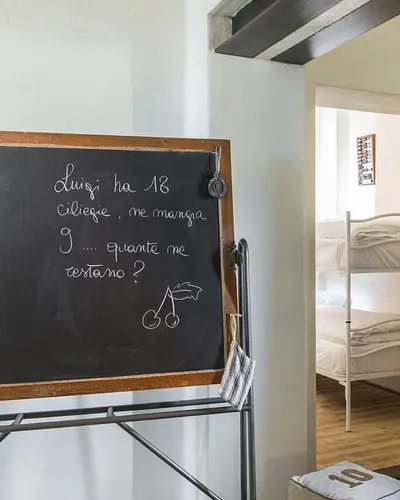 Luigi ha 18
ciliegie, ne mangia
9 .... quante ne
restano?
10